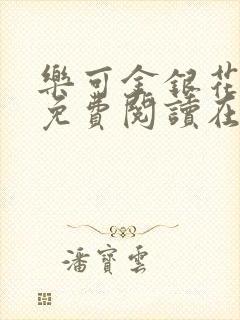 樂可金銀花
免費閱讀在
潘寶雲